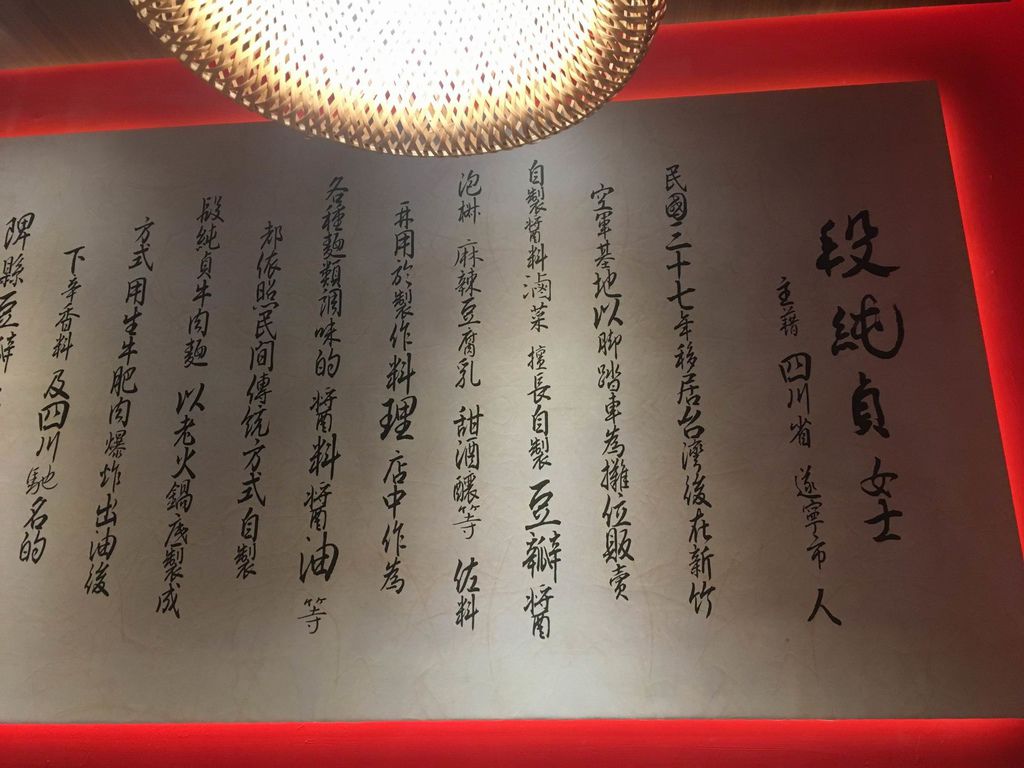 段純貞女士
主藉 四川省 遂寧市人
民國三十七年移居台灣後在新竹
空軍基地以脚踏車為攤位販賣
自製醬料滷菜 擅長自製豆瓣醬
泡椒 麻辣豆腐乳 甜酒釀等 佐料
再用於製作料理店中作為
各種麵類調味的醬料醬油等
都依照民間傳統方式自製
段純貞牛肉麵 以老火鍋底製成
方式用生牛肥肉爆炸出油後
下辛香料及四川馳名的
郫縣豆瓣